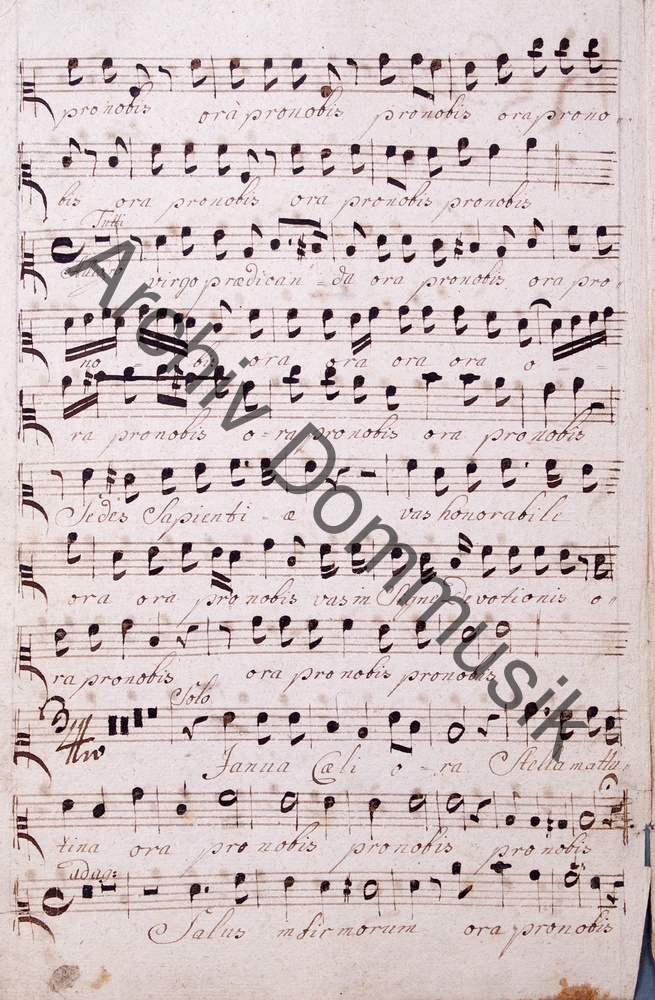 pro nobis ora pro nobis pro nobis ora pro no-
bis ora pro nobis ora pro nobis pro nobis
Tutti
virgo prædican-da ora pro nobis ora pro-
no bis ora ora ora ora o-
ra pro nobis o-ra pro nobis ora pro nobis
Sedes Sapienti-æ vas honorabile
ora ora pro nobis vas in devotionis o-
ra pro nobis ora pro nobis pro nobis
Solo
Janua Cæli o-ra Stella matu-
tina ora pro nobis pro nobis pro nobis
adag:
Salus infirmorum ora pro nobis
Archiv Dommusik